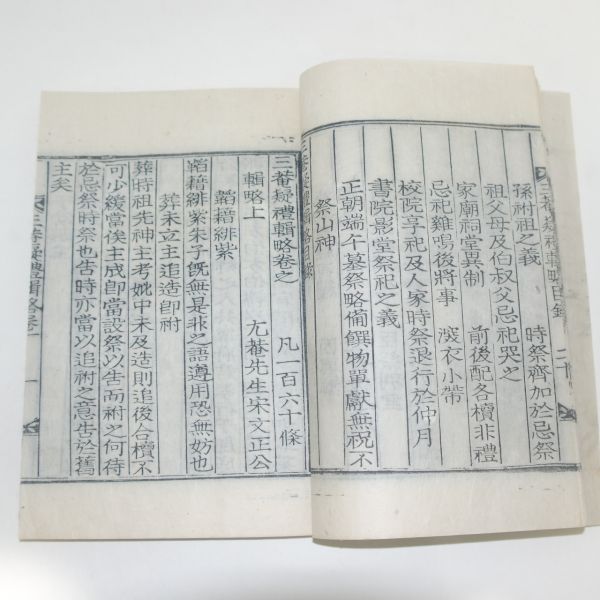 孫祔祖之義　時祭齊加於忌祭
祖父母及伯叔父忌祀哭之
家廟祠堂異制　前後配各櫝非禮
忌祀雞鳴後將事　深衣小帶
校院享祀及人家時祭退行於仲月
書院影堂祭祀之義
正朝端午墓祭略備饌物單獻無祝不
祭山神
三菴疑禮輯略卷之
輯略上　尤菴先生宋文正公
凡一百六十條
韜藉緋紫
韜藉緋紫朱子旣無是非之語遵用恐無妨也
葬未立主追造卽祔
葬時祖先神主考妣中未及造則追後合櫝不
可少緩當俟主成卽當設祭以告而祔之何待
於忌祭時祭也告時亦當以追祔之意告於舊
主矣
三菴疑禮輯略卷一
一
三菴疑禮輯略目錄
二